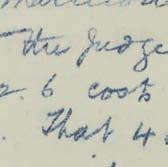 the Judge
2. 6 coats
. That 4